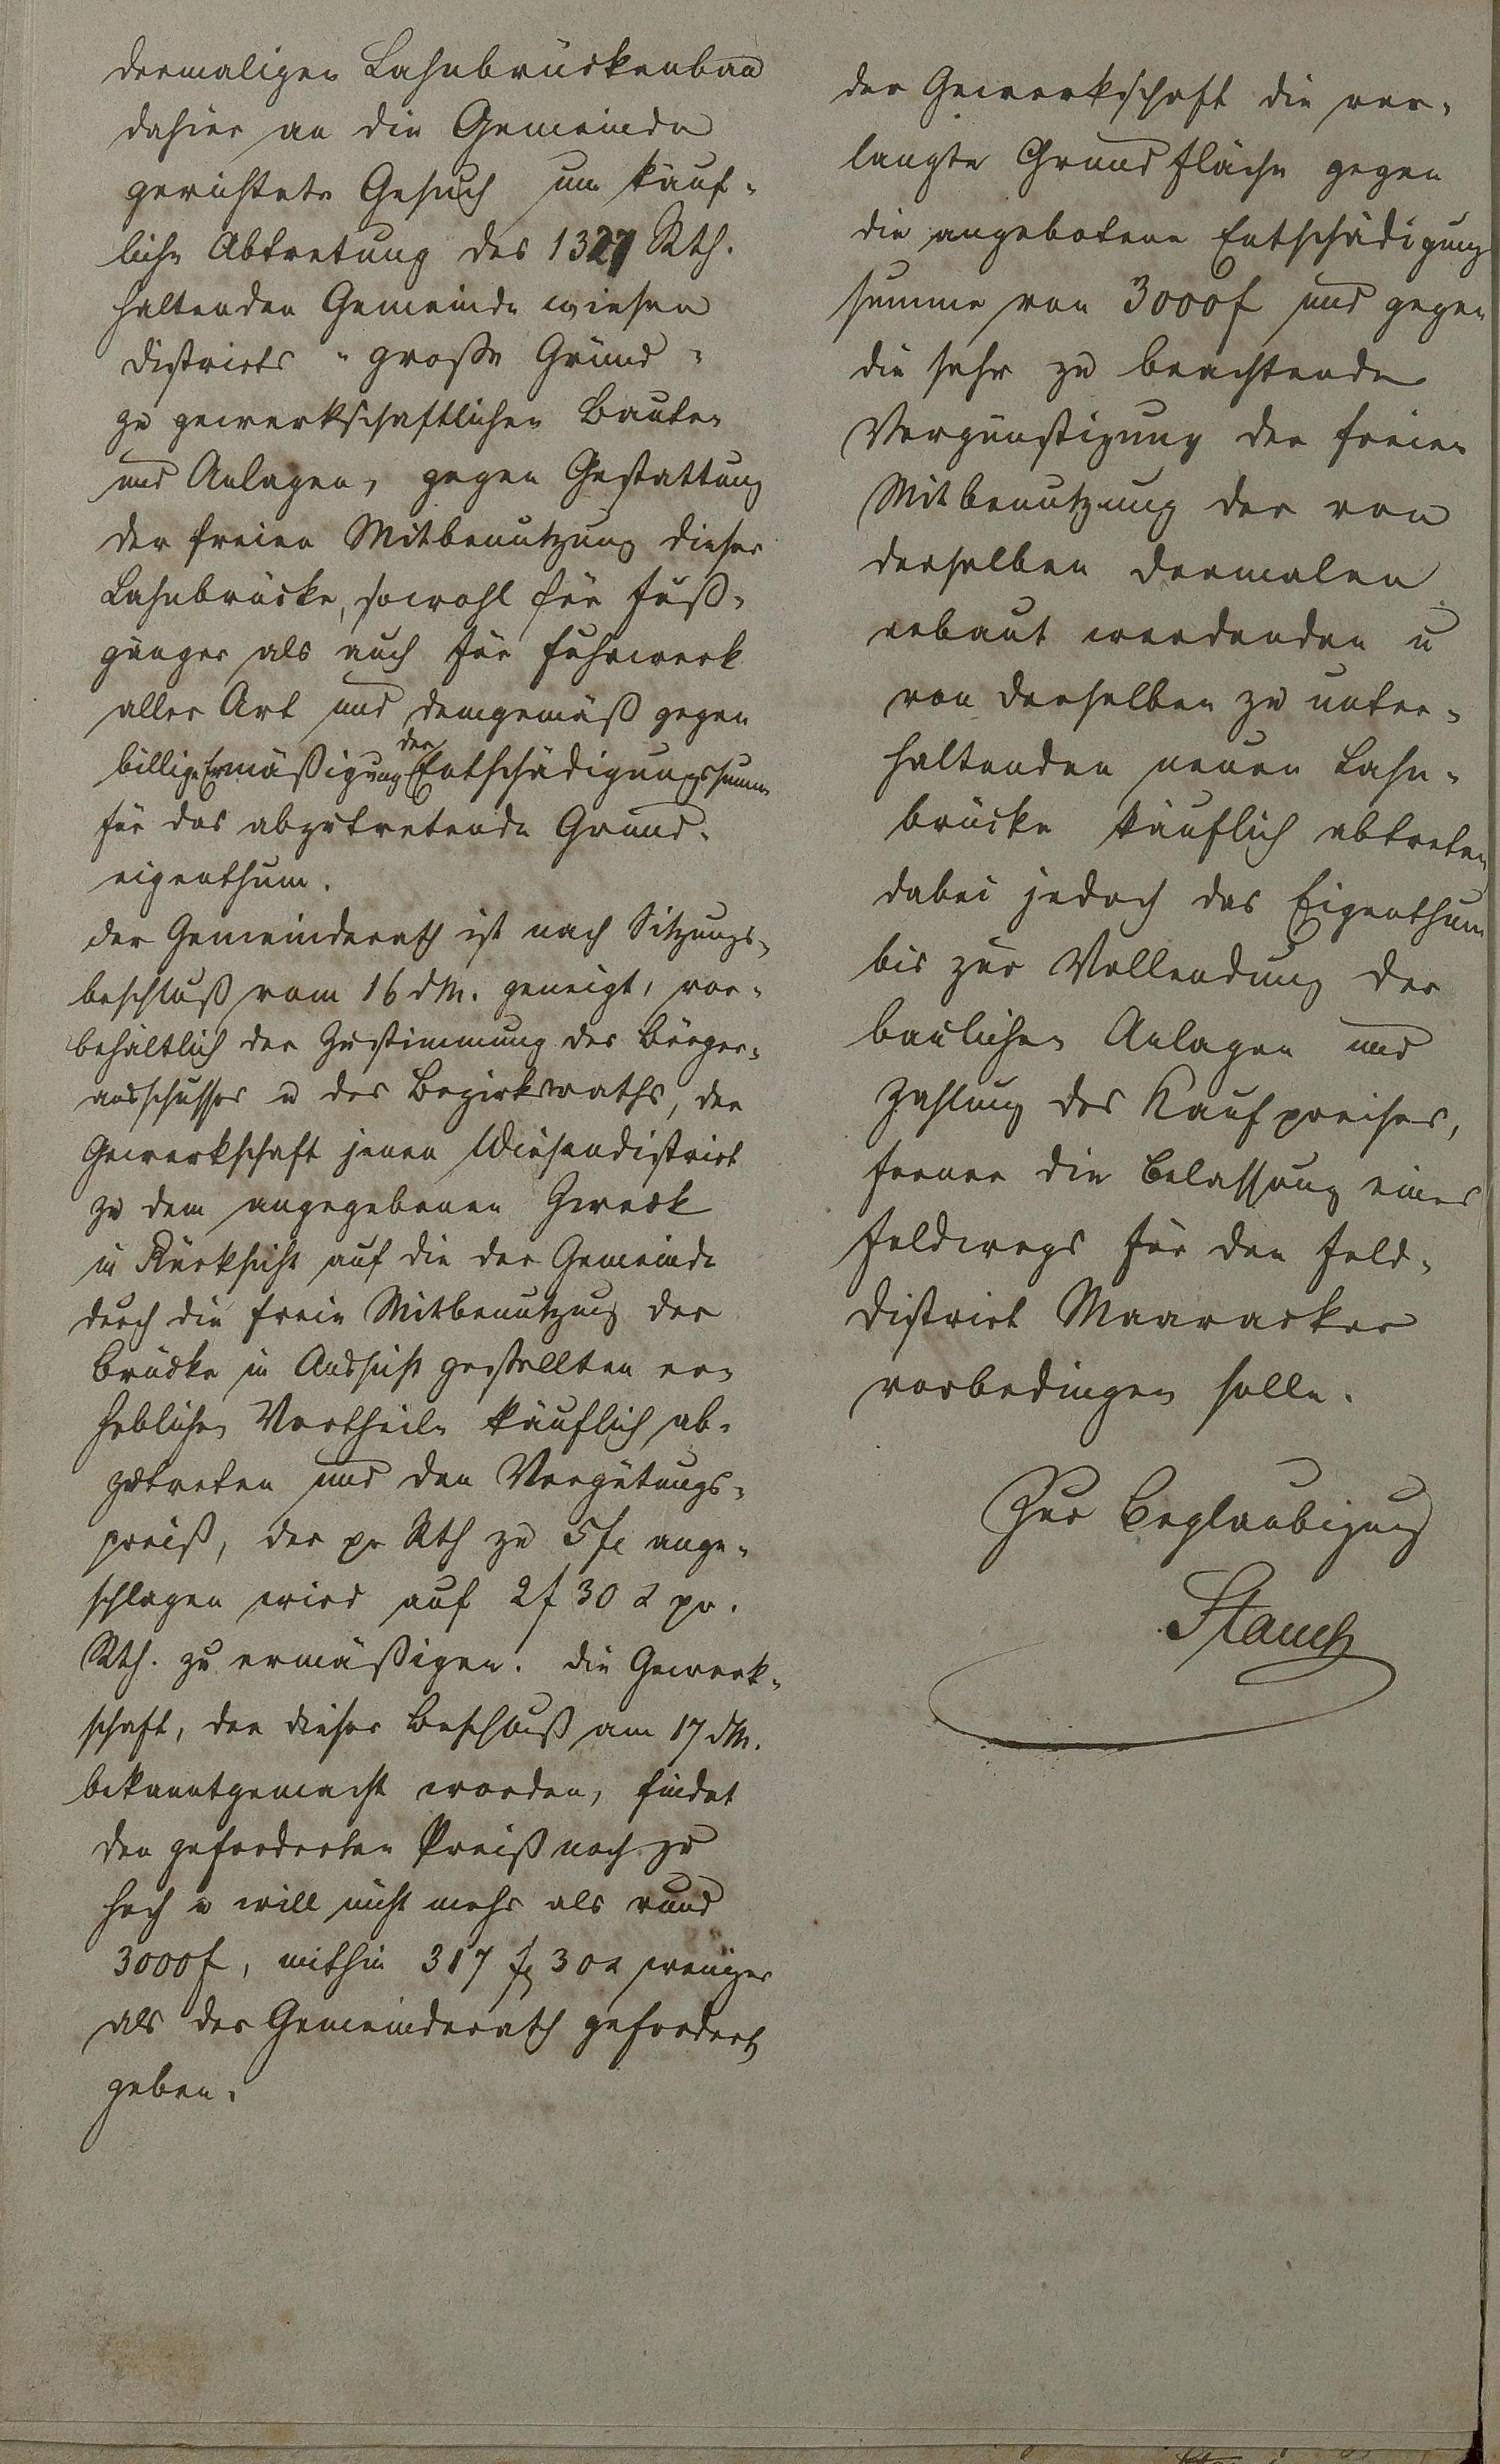 dermaligen Lahnbrückenbau
dahier an die Gemeinde
gerichtete Gesuch um käuf-
liche Abtretung des 1327 Rth.
haltenden Gemeinde wiesen
districts "große Gründ"
zu gewerkschaftlichen Bauten
und Anlagen, gegen Gestattung
der freien Mitbenutzung dieser
Lahnbrücke, sowohl für Fuß-
gänger als auch für Fuhrwerk
aller Art und demgemäß gegen
billige Ermäßigung der Entschädigungssumme
für das abzutretende Grund-
eigenthum.
der Gemeinderath ist nach Sitzungs-
beschluß vom 16 dM. geneigt, vor-
behältlich der Zustimmung des Bürger-
ausschusses u des Bezirksraths, der
Gewerkschaft jenen Wiesendistrict
zu dem angegebenen Zweck
in Rücksicht auf die der Gemeinde
durch die freie Mitbenutzung der
Brücke in Aussicht gestellten er-
heblichen Vortheile käuflich ab-
zutreten und den Vergütungs-
preiß, der pr Rth zu 5 f ange-
schlagen wird auf 2 f 30 x pr.
Rth. zu ermäßigen. die Gewerk-
schaft, der dieser Beschluß am 17 dM.
bekanntgemacht worden, findet
den geforderten Preiß noch zu
hoch u will nicht mehr als rund
3000 f, mithin 317 f 30 x weniger
als der Gemeinderath gefordert,
geben.
der Gewerkschaft die ver-
langte Grundfläche gegen
die angebotene Entschädigung
summe von 3000 f und gegen
die sehr zu beachtende
Vergünstigung der freien
Mitbenutzung der von
derselben dermalen
erbaut werdenden u
von derselben zu unter-
haltenden neuen Lahn-
brücke käuflich abtreten
dabei jedoch das Eigenthum
bis zur Vollendung der
baulichen Anlagen und
Zahlung des Kaufpreises,
ferner die Belassung eines
Feldwegs für den Feld-
district Maaracker
vorbedingen solle.
Zur Beglaubigung
Stauch